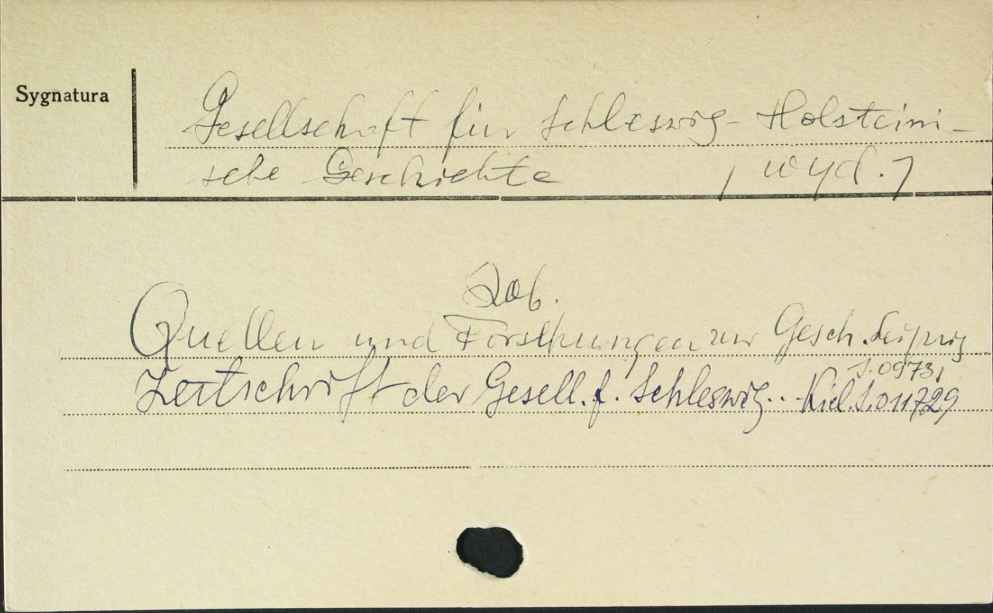 Sygnatura
Gesellschaft für Schleswig-Holsteini-
sche Geschichte /wyd./
Zob.
Quellen und Forschungen zur Gesch. Leipzig
S.0973,
Zeitschrift der Gesell. f. Schleswig... Kiel. S.011729